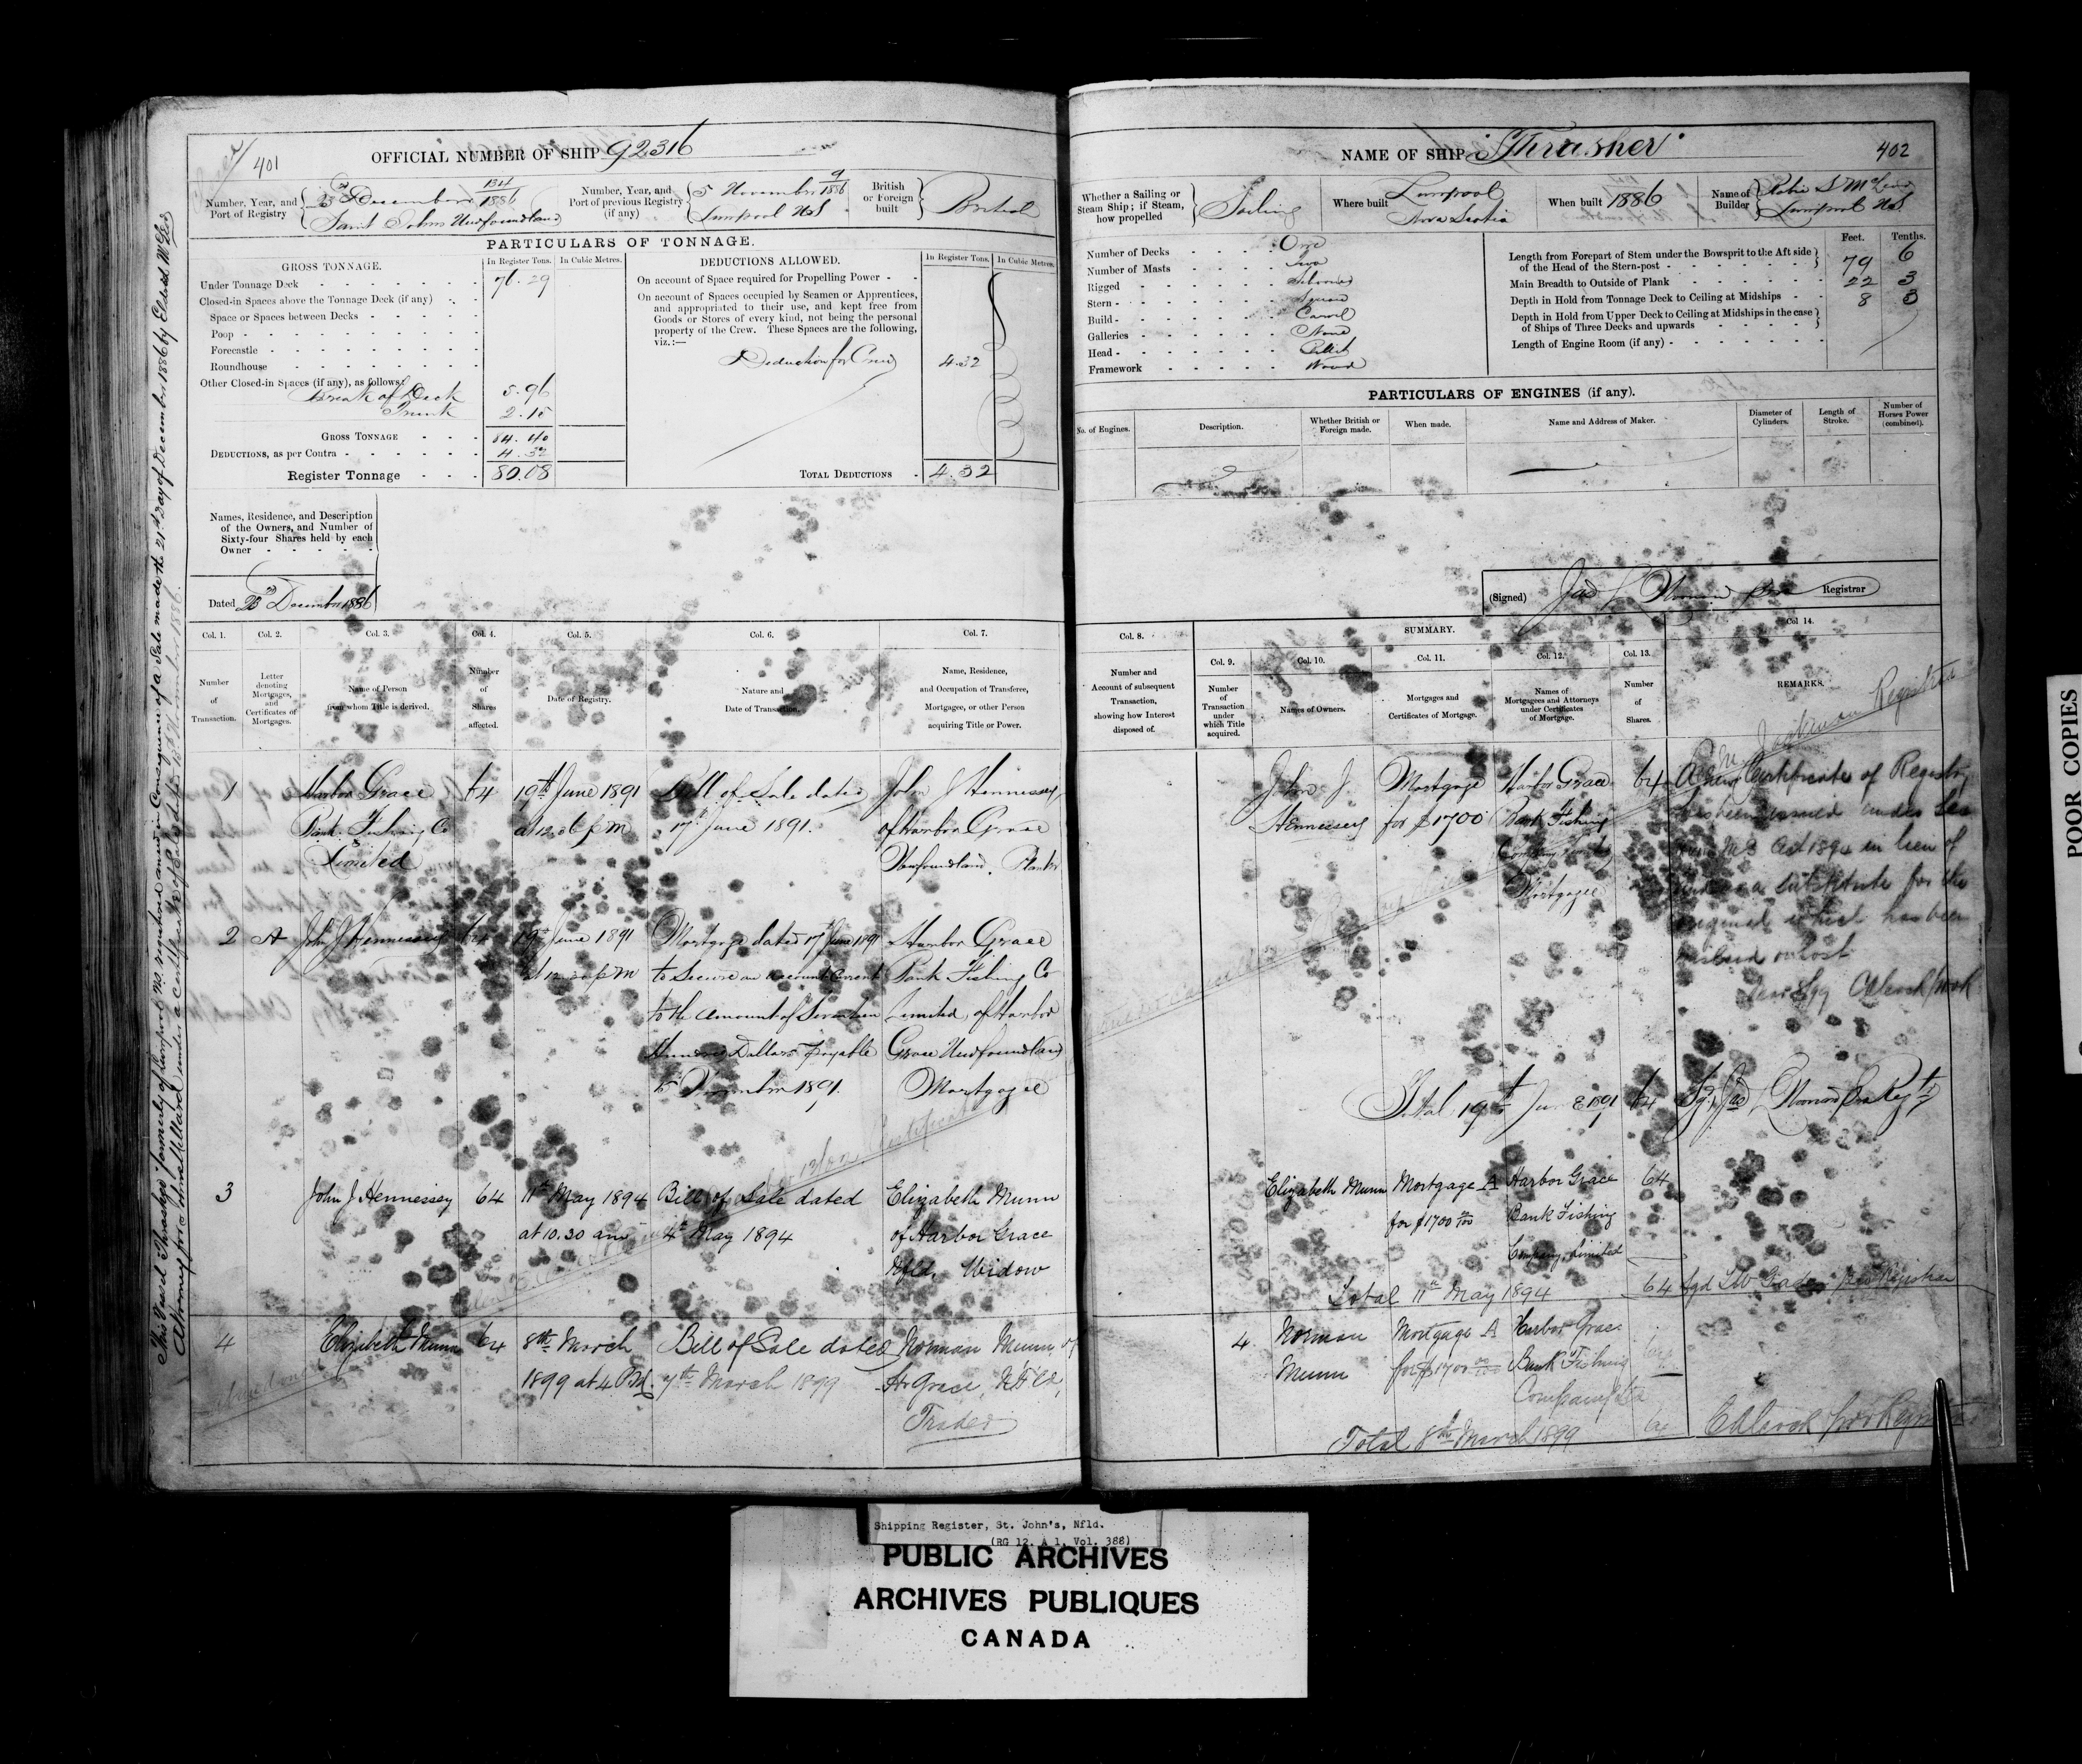 401
OFFICIAL NUMBER OF SHIP 92316
Number, Year, and Port of Registry
23rd December 134/1886
Saint Johns Newfoundland
Number, Year, and Port of previous Registry (if any)
5 November 9/1886
Liverpool N.S
British or Foreign built
British
PARTICULARS OF TONNAGE.
GROSS TONNAGE.
In Register Tons. In Cubic Metres.
Under Tonnage Deck 76.29
Closed-in Spaces above the Tonnage Deck (if any)
Space or Spaces between Decks
Poop
Forecastle
Roundhouse
Other Closed-in Spaces (if any), as follows:
Break of Deck 5.96
Trunk 2.15
GROSS TONNAGE 84.40
DEDUCTIONS, as per Contra 4.32
Register Tonnage 80.08
DEDUCTIONS ALLOWED.
In Register Tons. In Cubic Metres.
On account of Space required for Propelling Power
On account of Spaces occupied by Seamen or Apprentices,
and appropriated to their use, and kept free from
Goods or Stores of every kind, not being the personal
property of the Crew. These Spaces are the following,
viz.:—
Deduction for Crew 4.32
TOTAL DEDUCTIONS 4.32
Names, Residence, and Description
of the Owners, and Number of
Sixty-four Shares held by each
Owner
Dated 23rd December 1886
Col. 1. Col. 2. Col. 3. Col. 4. Col. 5. Col. 6. Col. 7.
Number of Transaction.
Letter denoting Mortgages, and Certificates of Mortgages.
Name of Person from whom Title is derived.
Number of Shares affected.
Date of Registry.
Nature and Date of Transaction.
Name, Residence, and Occupation of Transferee, Mortgagee, or other Person acquiring Title or Power.
1 Harbor Grace 64 19th June 1891 Bill of Sale dated John J Hennessey
Bank Fishing Co at 12 p m 17th June 1891. of Harbor Grace
Limited Newfoundland. Planter
2 A John J Hennessey 64 19th June 1891 Mortgage dated 17 June 1891 Harbor Grace
at 12 p m to Secure an account Current Bank Fishing Co
to the amount of Seventeen Limited, of Harbor
Hundred Dollars payable Grace Newfoundland
November 1891. Mortgagee
3 John J Hennessey 64 11th May 1894 Bill of Sale dated Elizabeth Munn
at 10.30 am 4th May 1894 of Harbor Grace
Nfld. Widow
4 Elizabeth Munn 64 8th March Bill of Sale dated Norman Munn of
1899 at 4 P.M. 7th March 1899 Hr Grace, Nfld,
Trader
This Vessel "Thrasher" formerly of Liverpool N.S. registered anew in Consequence of a Sale made the 21st day of December 1886 by
NAME OF SHIP "Thrasher"
402
Whether a Sailing or Steam Ship; if Steam, how propelled
Sailing
Where built
Liverpool
Nova Scotia
When built 1886
Name of Builder
Liverpool N.S
Number of Decks One
Number of Masts Two
Rigged Schooner
Stern Square
Build Carvel
Galleries None
Head Billet
Framework Wood
Feet. Tenths.
Length from Forepart of Stem under the Bowsprit to the Aft side of the Head of the Stern-post 79 6
Main Breadth to Outside of Plank 22 3
Depth in Hold from Tonnage Deck to Ceiling at Midships 8 3
Depth in Hold from Upper Deck to Ceiling at Midships in the case of Ships of Three Decks and upwards
Length of Engine Room (if any)
PARTICULARS OF ENGINES (if any).
No. of Engines. Description. Whether British or Foreign made. When made. Name and Address of Maker. Diameter of Cylinders. Length of Stroke. Number of Horses Power (combined).
(Signed) Registrar
Col. 8. SUMMARY. Col 14.
Col. 9. Col. 10. Col. 11. Col. 12. Col. 13.
Number and Account of subsequent Transaction, showing how Interest disposed of.
Number of Transaction under which Title acquired.
Names of Owners.
Mortgages and Certificates of Mortgage.
Names of Mortgagees and Attorneys under Certificates of Mortgage.
Number of Shares.
REMARKS.
John J. Mortgage Harbor Grace 64
Hennessey for $1700 Bank Fishing
Company Limited
Mortgagee
A new Certificate of Registry
has been issued under Sec
M.S Act 1894 in lieu of
and as a substitute for the
original which has been
mislaid or lost
Total 19th June 1891 64
Elizabeth Munn Mortgage A Harbor Grace 64
for $1700 00/100 Bank Fishing
Company, Limited
Total 11th May 1894 64
4 Norman Mortgage A Harbor Grace 64
Munn for $1700 00/100 Bank Fishing
Company Ltd
Total 8th March 1899 64
POOR COPIES
Shipping Register, St. John's, Nfld.
(RG 12, A 1, Vol. 388)
PUBLIC ARCHIVES
ARCHIVES PUBLIQUES
CANADA